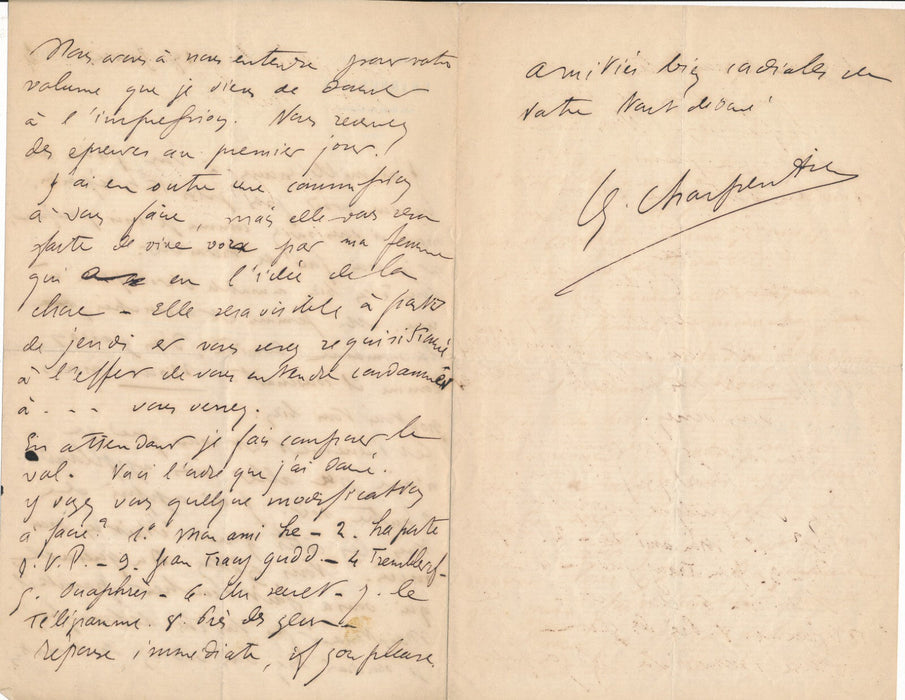 Nous avons à nous entendre pour votre
volume que je viens de donner
à l'impression. Vous recevrez
des épreuves au premier jour.
J'ai en outre une commission
à vous faire, mais elle vous sera
faite de vive voix par ma femme
qui a eu l'idée de la
chose – Elle sera visible à partir
de jeudi et vous serez requisitionné
à l'effet de vous entendre condamner
à . . . . vous verrez.
En attendant je fais composer le
vol. Voici l'ordre que j'ai donné.
y voyez vous quelque modification
à faire? 1º Mon ami – 2. La porte
S.V.P. – 3. Jean – 4
5. Onuphrès – 6. Un secret – 7. le
Télégramme. 8. Près des
Réponse immédiate, if you please.
Amitiés bien cordiales de
votre tout dévoué
G. Charpentier